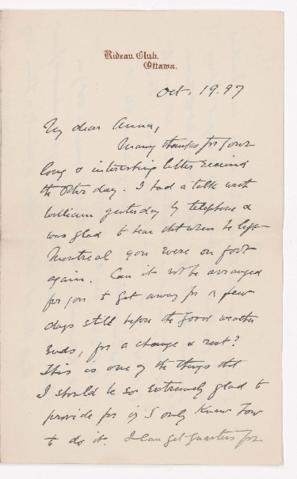 Rideau Club.
Ottawa.
Oct. 19.97
My dear Anna,
Many thanks for your
long & interesting letter received
the other day. I had a talk with
William yesterday by telephone &
was glad to hear that when he left
Montreal you were on foot
again. Can it not be arranged
for you to get away for a few
days still before the good weather
ends, for a change & rest?
This is one of the things that
I should be so extremely glad to
provide for if I only knew how
to do it. I can get quarters for